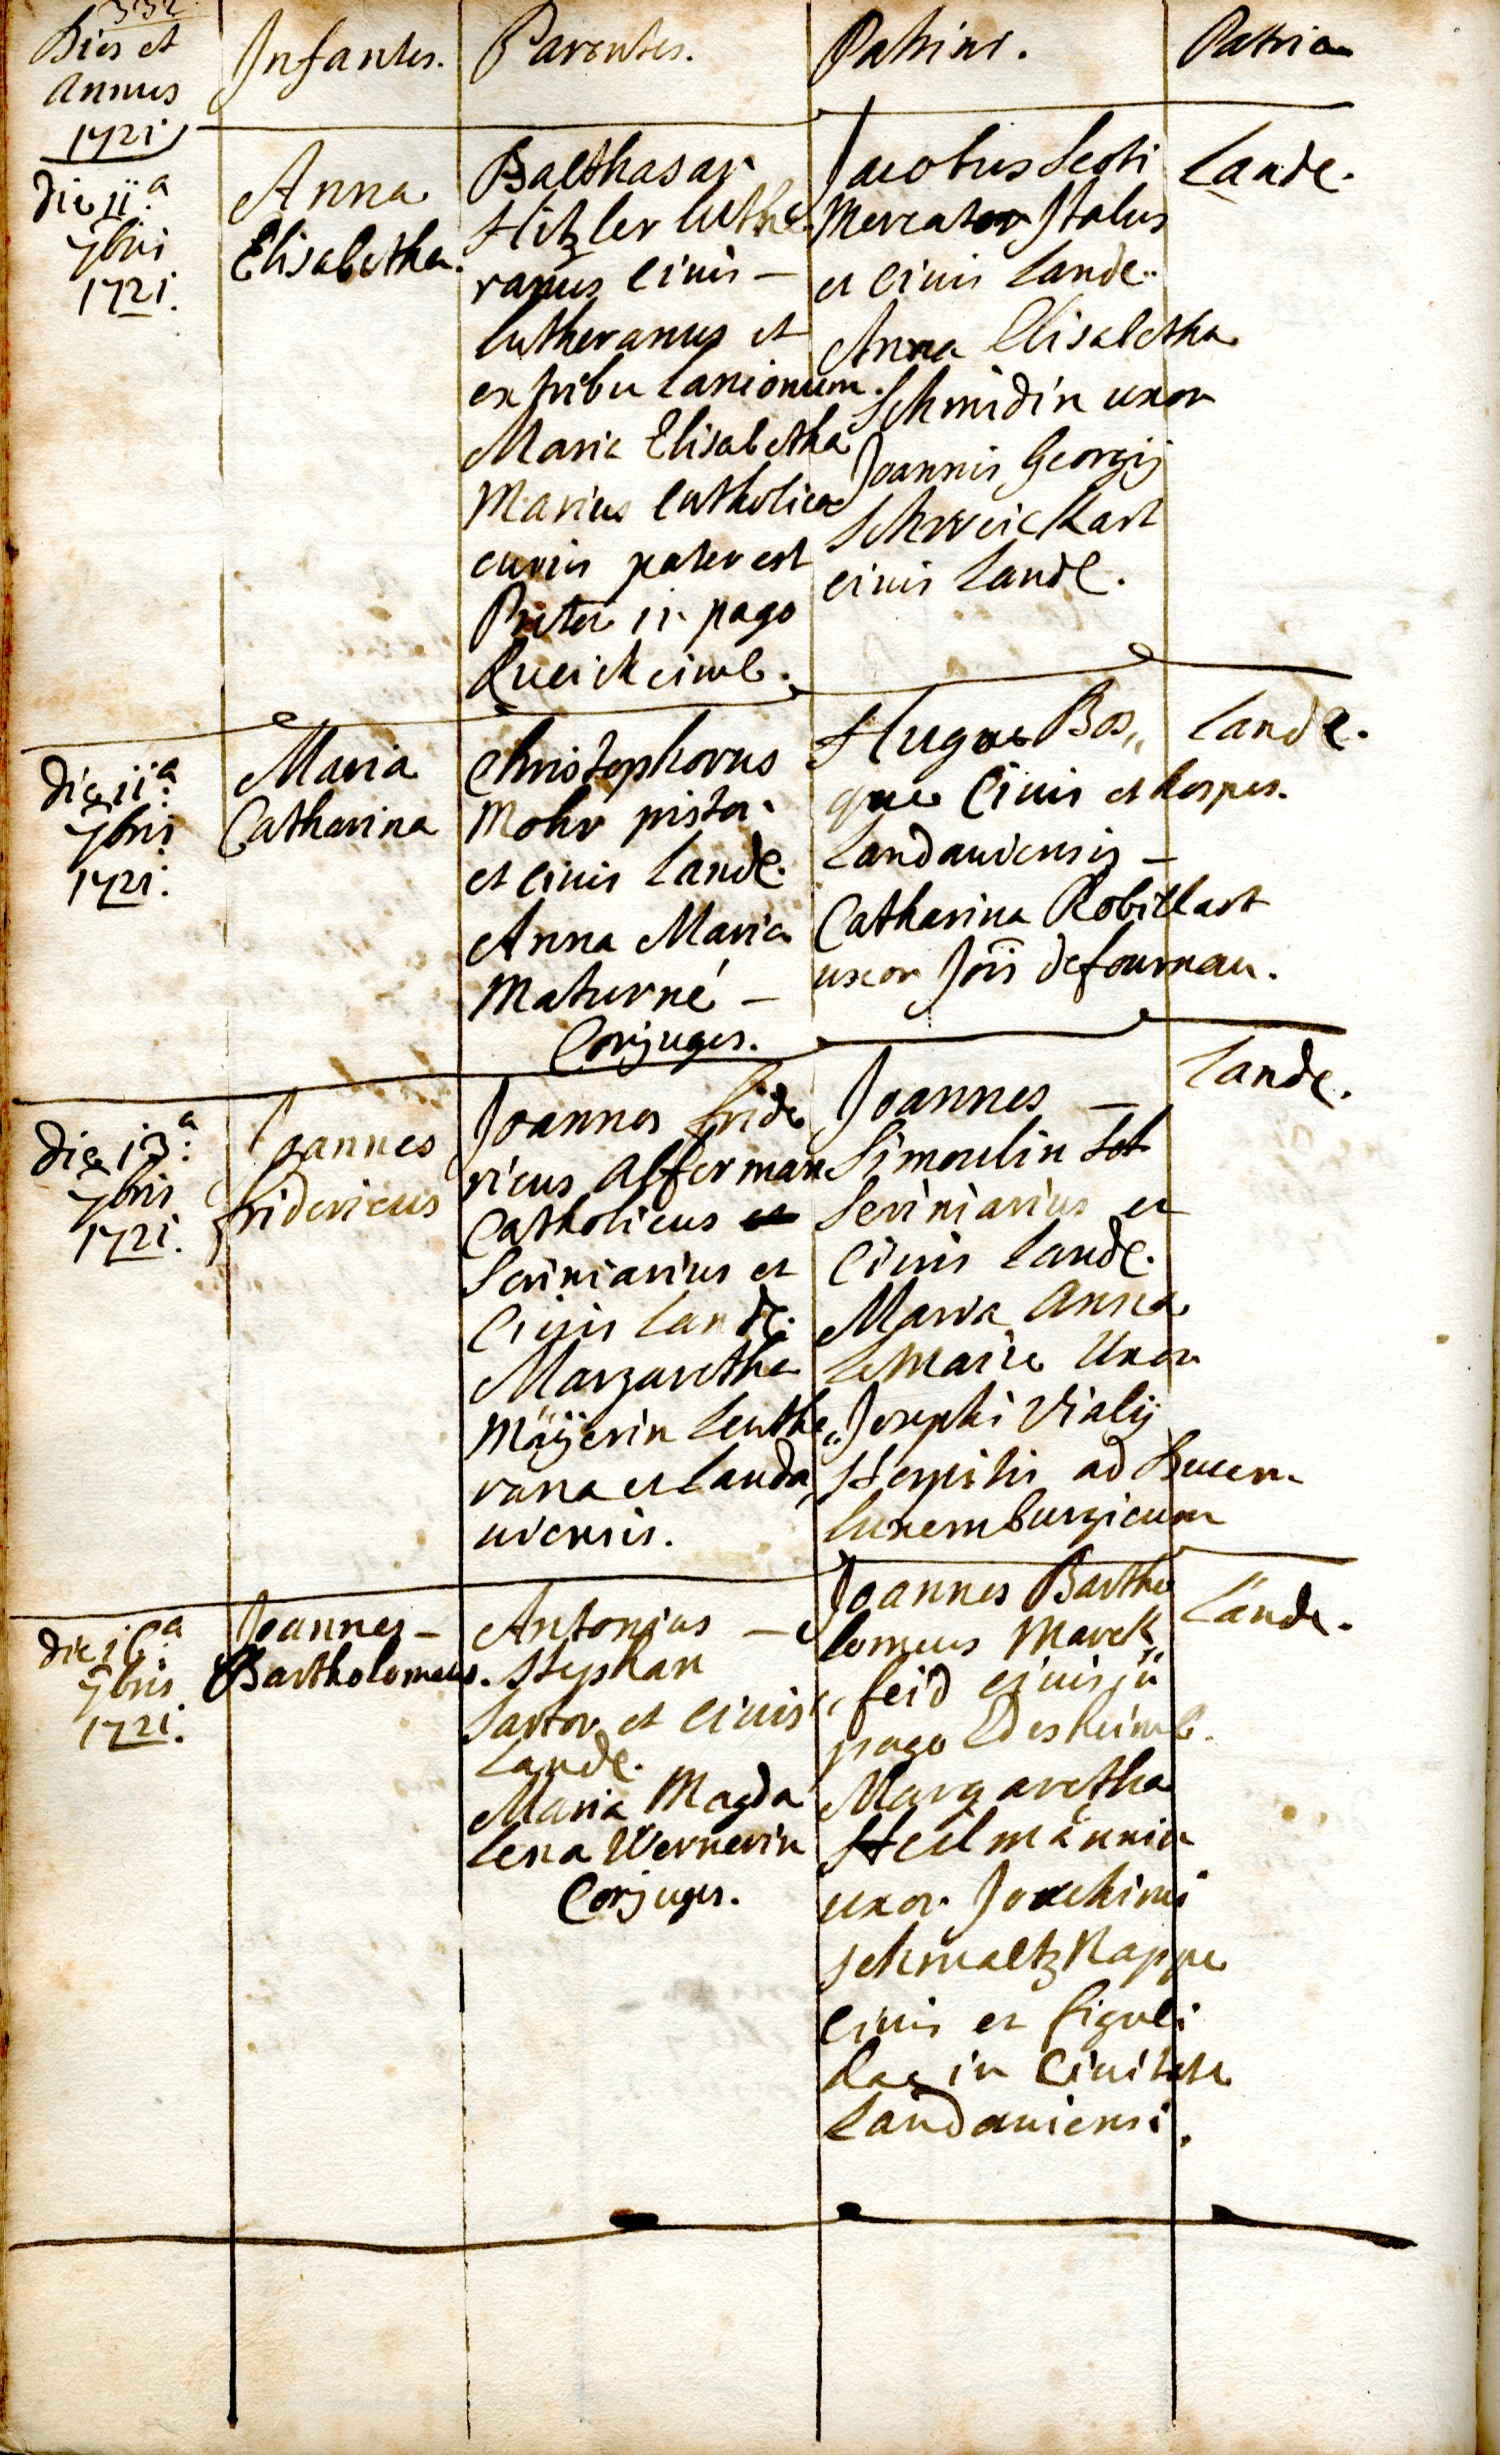 332
Dies et
Annus
1721
Infantes.
Parentes.
Patrini.
Patria
die 11.a
7bris
1721.
Anna
Elisabetha.
Balthasar
Hitzler luthe
ranus civis –
lutheranus et
ex tribu lanionum.
Maria Elisabetha
Marius catholica
cuius pater est
in pago
Queickeimb.
Jacobus Scoti
Mercator Italus
et civis Lande.
Anna Elisabetha
Schmidin uxor
Joannis Georgij
Schweickart
civis Lande.
Lande.
die 11.a
7bris
1721.
Maria
Catharina
Christophorus
Mohr pistor
et civis Lande.
Anna Maria
Maturné –
Conjuges.
Hugue Bos„
que Civis et hospes.
Landaviensis –
Catharina Robillart
uxor Jois defournau.
Lande.
die 13.a
7bris
1721.
Joannes
fridericus
Joannes fride
ricus Afferman
Catholicus et
Scriniarius et
Civis Lande.
Margaretha
Mäÿerin Leuthe„
rana et Landa„
viensis.
Joannes –
Simoulin
Scriniarius et
Civis Lande.
Maria Anna
Lemaire Uxor
Josephi Vialij
Hospitis ad
luxemburgicum
Lande.
die 16.a
7bris
1721.
Joannes –
Bartholomeus.
Antonius –
Stephan
Sartor et civis
Lande.
Maria Magda
lena Wernerin
Conjuges.
Joannes Bartho
lomeus Marck„
feid civis in
pago Edesheimb.
Margaretha
Heilmännin
uxor Joachimi
Schmaltz Kappe
civis et figuli
hac in Civitate
Landaviensi.
Lande.